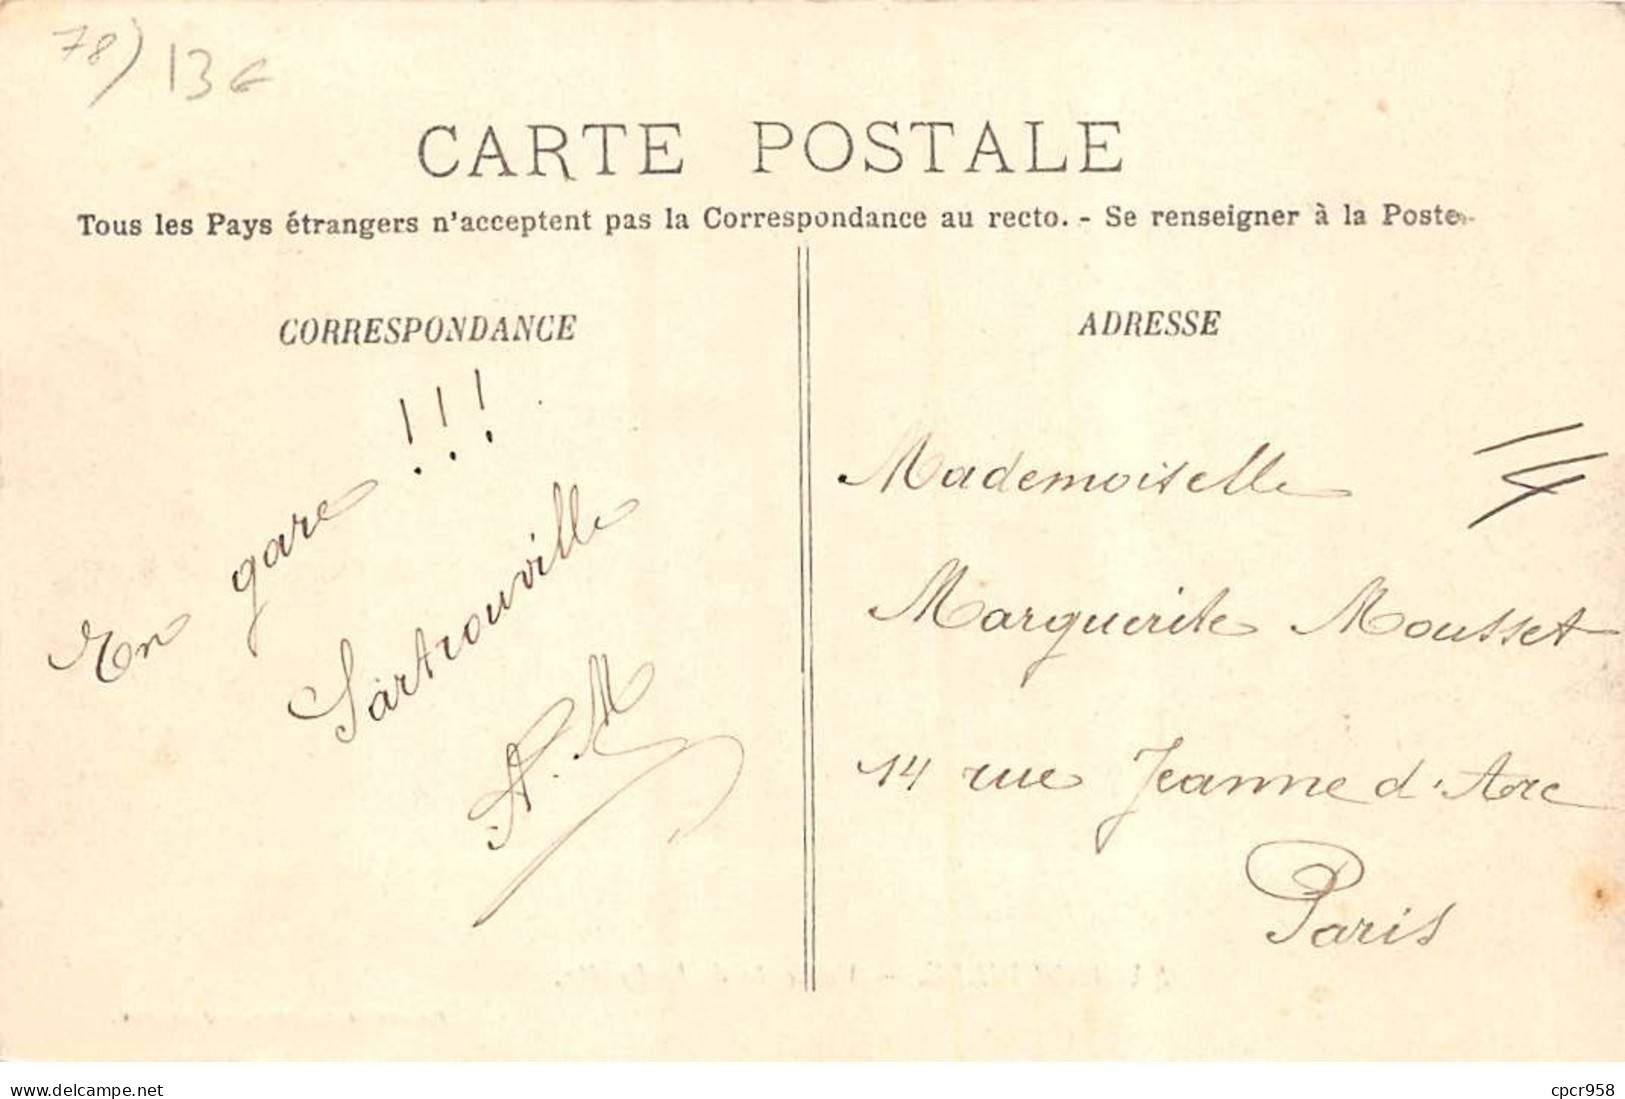 78) 13€
CARTE POSTALE
Tous les Pays étrangers n'acceptent pas la Correspondance au recto. - Se renseigner à la Poste
CORRESPONDANCE
En gare !!!
Sartrouville
A. M
ADRESSE
Mademoiselle
Marguerite Mousset
14 rue Jeanne d'Arc
Paris
www.delcampe.net
cpcr958